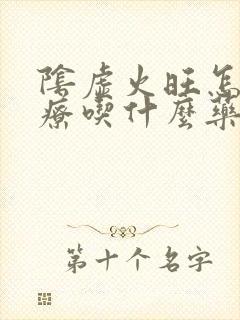 陰虛火旺怎
療喫什麼藥
第十个名字